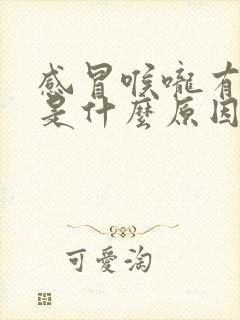 感冒喉嚨有
是什麼原因
可愛淘